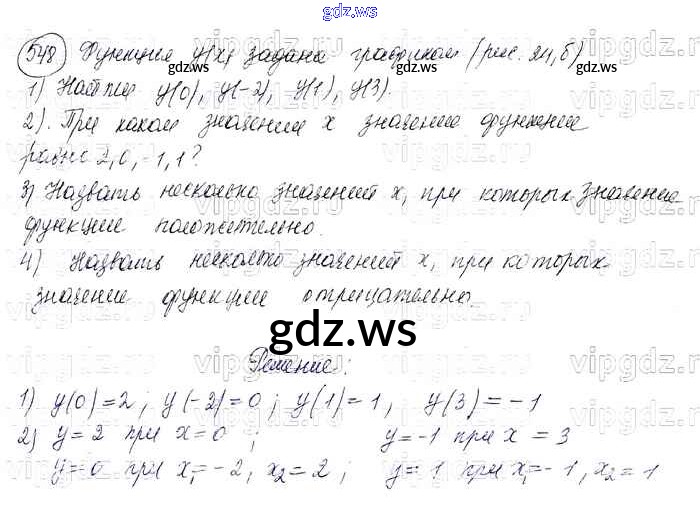 gdz.ws
548 Функция y(x) задана графиком (рис. 21, б)
gdz.ws gdz.ws
1) Найти y(0), y(-2), y(1), y(3).
2). При каком значении x значение функции
равно 2, 0, -1, 1?
3) Назвать несколько значений x, при которых значение
функции положительно.
4) Назвать несколько значений x, при которых
значение функции отрицательны.
gdz.ws
Решение:
1) y(0)=2; y(-2)=0; y(1)=1, y(3)=-1
2) y=2 при x=0; y=-1 при x=3
y=0 при x₁=-2, x₂=2; y=1 при x₁=-1, x₂=1